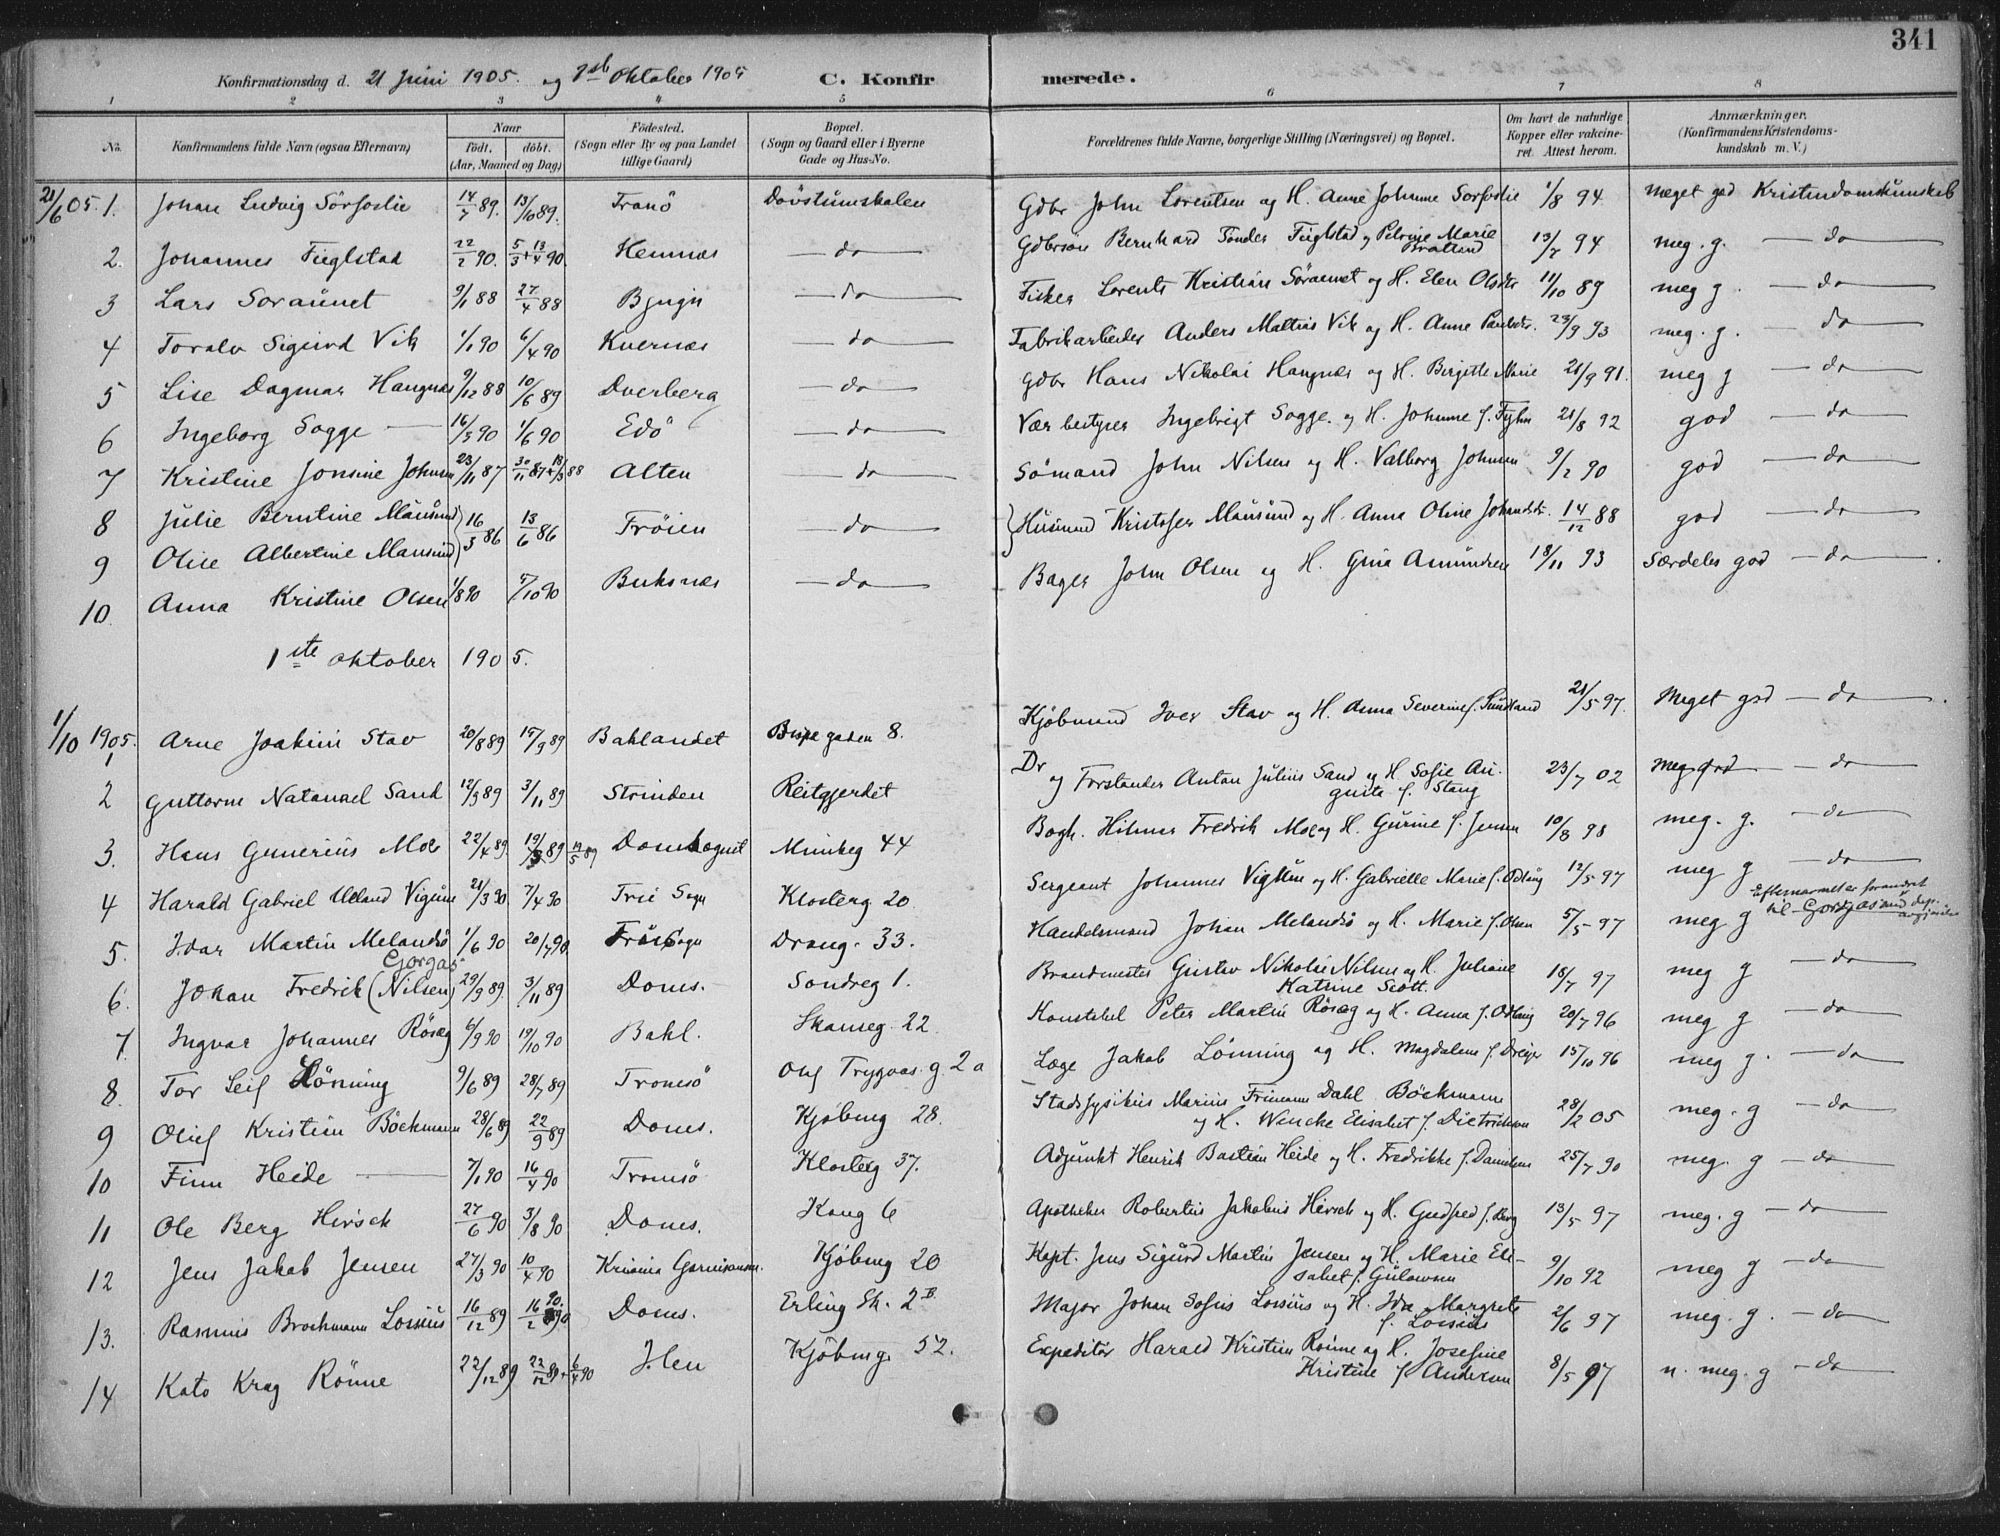 341
Konfirmationsdag d. 21 Juni 1905. og 1ste Oktober 1905 C. Konfirmerede.
1 2 3 4 5 6 7 8
No. Konfirmandens fulde Navn (ogsaa Efternavn) Naar født, døbt. (Aar, Maaned og Dag) Fødested. (Sogn eller By og paa Landet tillige Gaard) Bopæl. (Sogn og Gaard eller i Byerne Gade og Hus-No. Forældrenes fulde Navne, borgerlige Stilling (Næringsvei) og Bopæl. Om havt de naturlige Kopper eller vakcineret. Attest herom. Anmærkninger. (Konfirmandens Kristendomskundskab m. V.)
21/6 05. 1. Johan Ludvig Sörfoslie 14/7 89. 13/10 89. Tranö Døvstumskolen Gdbr John Lorentsen og H. Anne Johanne Sorfoslie 1/8 94 Meget god Kristendomskunskab
2. Johannes Fuglstad 22/2 90. 5/3 + 13/4 90. Hemnæs — do — Gdbrsøn Bernhard Tønder Fuglstad og Petrine Marie Bratland 13/7 94 meg. g. — do
3 Lars Soraunet 9/1 88 27/4 88 Bjugn — do — Fisker Lorents Kristian Söraunet og H. Elen Olsdtr 11/10 89 meg g. — do
4 Toralv Sigurd Vik 1/1 90 6/4 90 Kvernæs — do — Fabrikarbeider Anders Mattias Vik og H. Anne Paulsdtr. 23/9 93 meg. g. — do
5 Lise Dagmar Haugnæs 9/12 88 10/6 89 Dverberg — do — Gdbr Hans Nikolai Haugnæs og H. Birgitte Marie 21/9 91. meg g — do
6 Ingeborg Sogge — 16/3 90 1/6 90 Edö — do — Værbestyrer Ingebrigt Sogge og H. Johanne f. Fyhn 21/8 92 god — do
7 Kristine Jonsine Johnsen 23/11 87 30/11 87 + 18/3 88 Alten — do — Sömand John Nilsen og H. Valborg Johnsen 9/2 90 god — do
8 Julie Berntine Mausund } 16/3 86 13/6 86 Fröien — do — } Husmand Kristofer Mausund og H. Anna Oline Johansdtr. 14/12 88 god — do
9 Olise Albertine Mausund
10 Anna Kristine Olsen 1/8 90 5/10 90 Buksnæs — do — Bager John Olsen og H. Gina Amundsen 18/11 93 Særdeles god — do
1ste Oktober 1905.
1/10 1905. 1 Arne Joakim Stav 20/8 89 15/9 89 Baklandet Bispegaden 8. Kjöbmand Iver Stav og H. Anna Severine f. Sundland 21/5 97. Meget god — do
2 Guttorm Natanael Sand 12/9 89 3/11 89 Strinden Reitgjerdet Dr og Forstander Anton Julius Sand og H. Sofie Augusta f. Stang 23/7 02 Meg god — do
3. Hans Gunerius Moe 22/4 89. 19/5 89 19/5 89 Domsognet Munkeg 44 Bogh. Hilmar Fredrik Moe og H. Gurine f. Jensen 10/8 98 meg. g. — do
4 Harald Gabriel Ulland Vigum 21/3 90 7/4 90 Frue Sogn Klosterg 20 Sergeant Johannes Vigum og H. Gabrielle Marie f. Ödling 12/5 97 meg g — do
5. Idar Martin Melandsö 1/6 90 20/7 90 Frue Sogn Drong. 33. Handelsmand Johan Melandsö og H. Marie f. Olsen 5/5 97 meg g Efternavnet er forandret til Gorgas
6. Johan Fredrik (Nilsen) Gorgas 23/9 89. 3/11 89 Doms. Sondreg 1. Brandmester Gustav Nikolai Nilsen og H. Juliane Katrine Scott. 18/7 97 meg g — do
7. Ingvar Johannes Rösæg 6/9 90 19/10 90 Bakl. Skanseg. 22 Konstabel Peter Martin Rösæg og H. Anna f. Ödling 20/7 96 meg g — do
8. Tor Leif Lönning 9/6 89 28/7 89 Tromsö Olaf Trygvas. g. 2 a Læge Jakob Lönning og H. Magdalene f. Dreyer 15/10 96 meg g. — do
9 Oluf Kristian Böckmann 28/6 89 22/9 89 Doms. Kjöbmg 28. Stadsfysikus Marius Frimann Dahl Böckmann og H. Wencke Elisabet f. Dietrichson 28/2 05 meg. g — do
10 Finn Heide — 7/1 90 16/4 90 Tromsö Klosterg 37. Adjunkt Henrik Bastian Heide og H. Fredrikke f. Danielsen 25/7 90 meg. g — do
11 Ole Berg Hirsch 27/6 90 3/8 90 Doms. Kong 6 Apotheker Robertus Jakobus Hirsch og H. Gudfred f. Berg 13/5 97 meg. g — do
12 Jens Jakob Jensen 27/3 90 10/4 90 Kristiania Garnisonsm. Kjöbmg 20 Kapt. Jens Sigurd Martin Jensen og H. Marie Elisabet f. Gulowsen 9/10 92 meg g — do
13. Rasmus Brochmann Lossius 16/12 89 16/2 90. Doms. Erling Sk. 2B Major Johan Sofus Lossius og H. Ida Margrete f. Lossius 2/6 97 meg. g. — do
14 Kato Krag Rönne 22/12 89 22/12 89 + 6/4 90 Ilen Kjöbmg. 52. Expeditör Harald Kristian Rönne og H. Josefine Kristine f Andersen 8/5 97 n. meg. g — do